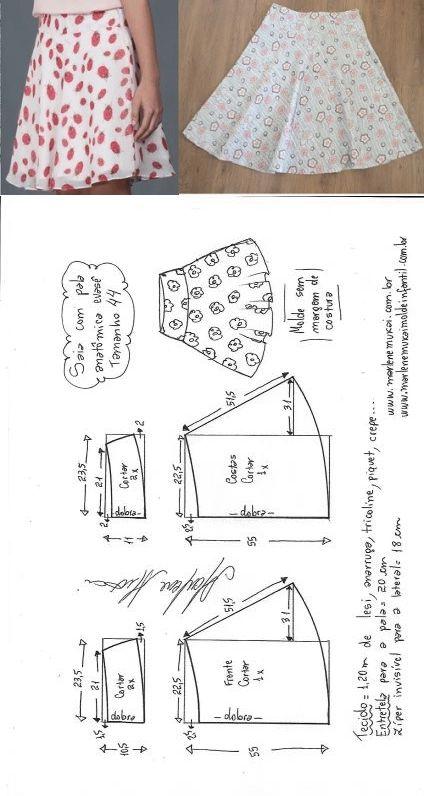 Saia com pala
anatômica evasê
Tamanho 44
Molde sem
margem de
costura
www.marlenemukai.com.br
www.marlenemukaimoldeinfantil.com.br
23,5
21
2
2
11
Cortar
2x
dobra
22,5
2,5
51,5
31
Costas
Cortar
1x
dobra
55
23,5
21
1,5
1,5
10,5
Cortar
2x
dobra
22,5
2,5
51,5
31
Frente
Cortar
1x
dobra
55
Marlene Mukai
Tecido = 1,20m de lesi, anarruga, tricoline, piquet, crepe...
Entretela para a pala = 20 cm
Zíper invisível para a lateral = 18 cm